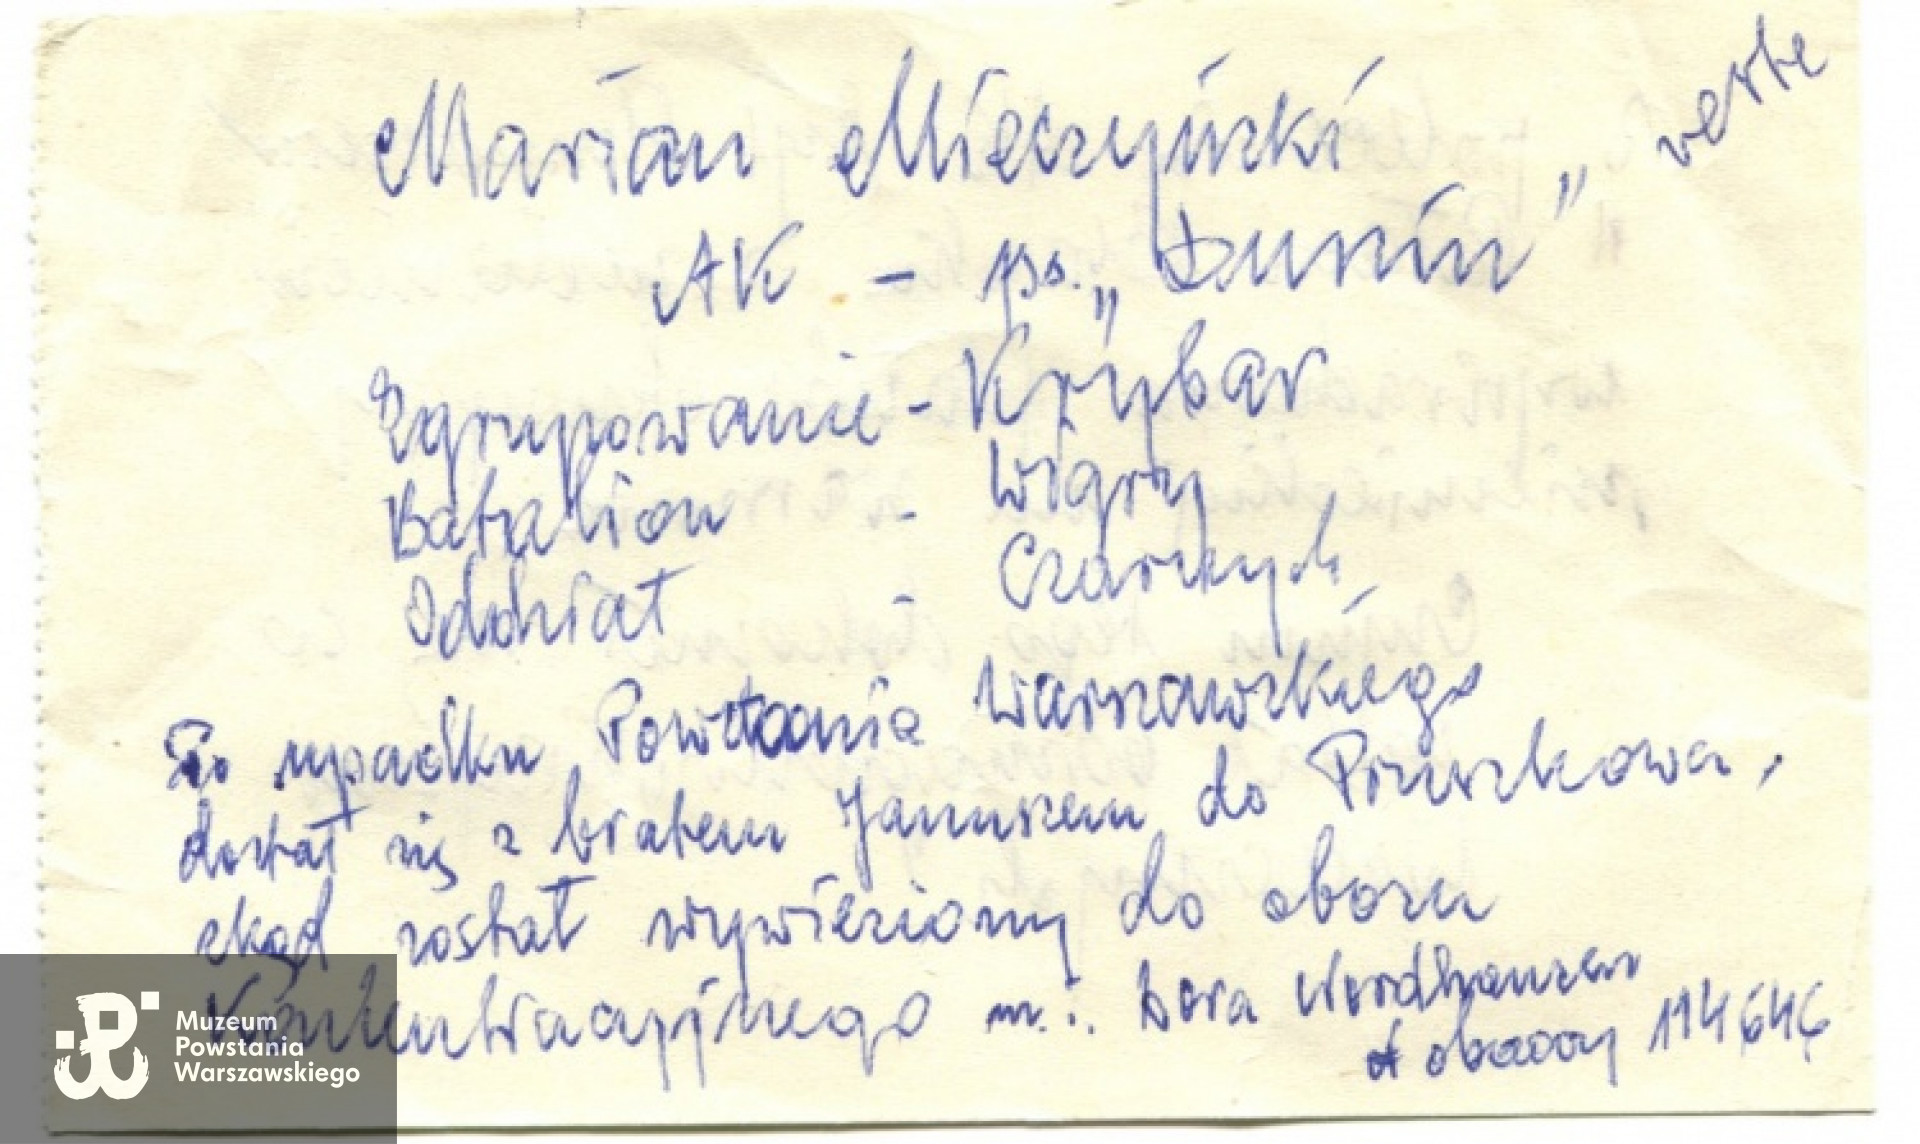 verte
Marian Mieczyński
AK - ps. „Dunin"
Zgrupowanie - Krybar
Batalion - Wigry
Oddział - Czarnych
Po upadku Powstania Warszawskiego
dostał się z bratem Januszem do Pruszkowa,
skąd został wywieziony do obozu
Koncentracyjnego m.i. Dora Nordhausen
obozowy 114646
Muzeum
Powstania
Warszawskiego